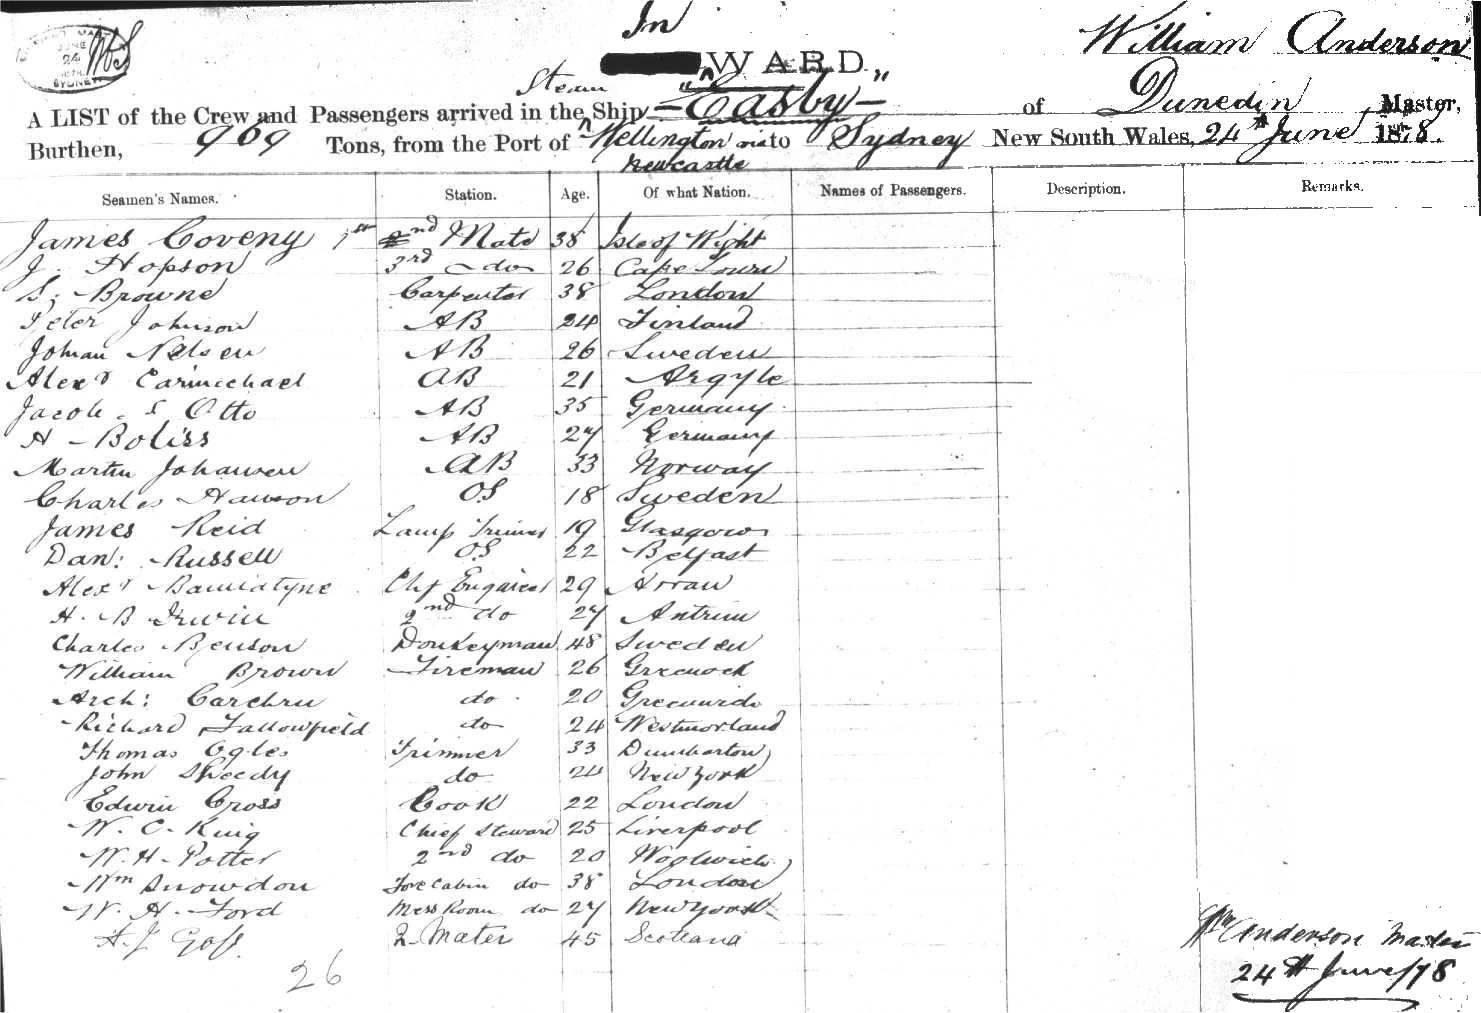 In
WARD.
William Anderson
JUNE
24
SYDNEY
A LIST of the Crew and Passengers arrived in the Steam Ship "Easby" of Dunedin Master,
Burthen, 969 Tons, from the Port of Wellington via Newcastle to Sydney New South Wales, 24th June 1878.
Seamen's Names. Station. Age. Of what Nation. Names of Passengers. Description. Remarks.
James Coveny 1st 2nd Mate 38 Isle of Wight
J. Hopson 3rd do 26 Cape Town
S. Browne Carpenter 38 London
Peter Johnson AB 24 Finland
Johan Nelsen AB 26 Sweden
Alexr Carmichael AB 21 Argyle
Jacob S Otto AB 35 Germany
H Boliss AB 27 Germany
Martin Johansen AB 33 Norway
Charles Hanson OS 18 Sweden
James Reid Lamp Trimer 19 Glasgow
Dan: Russell OS 22 Belfast
Alexr Bannatyne Chf Engineer 29 Arran
H. B Irwin 2nd do 27 Antrim
Charles Benson Donkeyman 48 Sweden
William Brown Fireman 26 Greenock
Arch: do 20
Richard Fallowfield do 24 Westmorland
Thomas Ogles Trimmer 33 Dumbarton
John Sheedy do 24 New York
Edwin Cross Cook 22 London
W. C. King Chief Steward 25 Liverpool
W. H. Potter 2nd do 20 Woolwich
Wm Snowdon Fore Cabin do 38 London
W. H. Ford Mess Room do 27 New York
A. J. Goff 2 Mater 45 Scotland
26
Wm Anderson Master
24th June/78